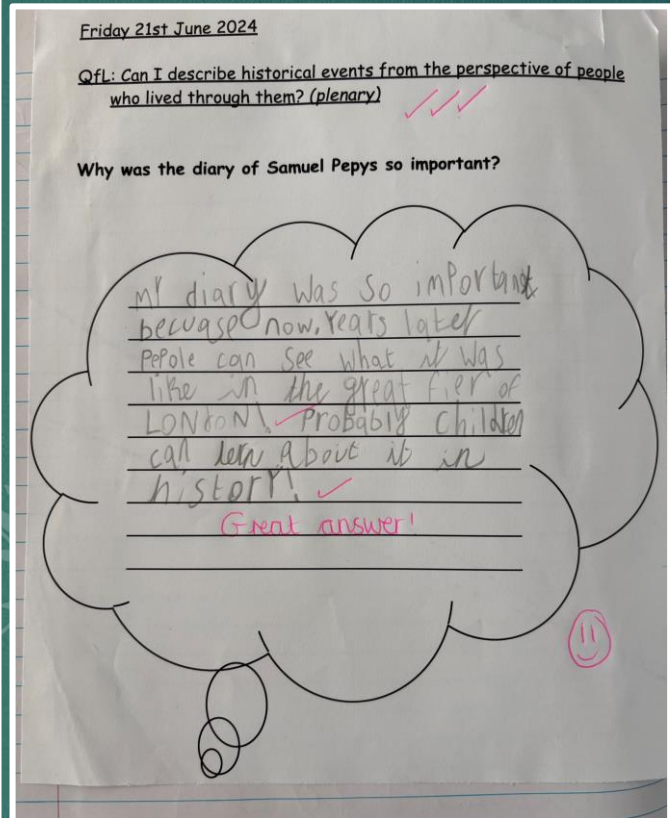 Friday 21st June 2024
QfL: Can I describe historical events from the perspective of people
who lived through them? (plenary)
Why was the diary of Samuel Pepys so important?
my diary was so important
becuase now, years later
Pepole can see what it was
like in the great fier of
LONDON! Probably children
can lern about it in
history!
Great answer!